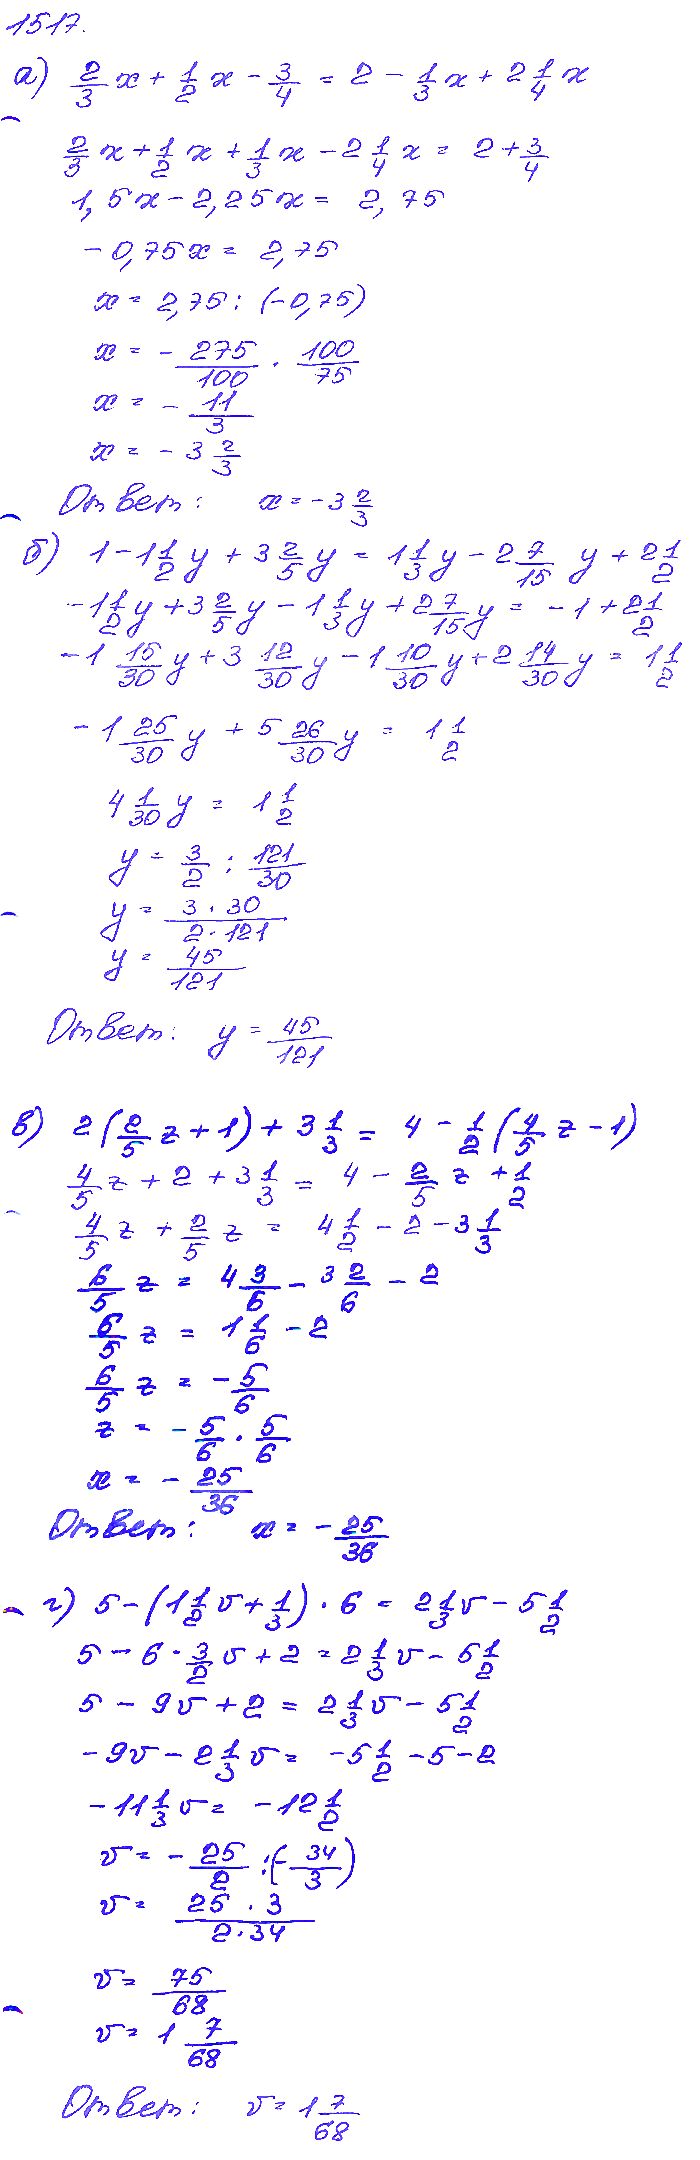 1517.
а) 2/3 x + 1/2 x - 3/4 = 2 - 1/3 x + 2 1/4 x
2/3 x + 1/2 x + 1/3 x - 2 1/4 x = 2 + 3/4
1,5x - 2,25x = 2,75
-0,75x = 2,75
x = 2,75 : (-0,75)
x = - 275/100 · 100/75
x = - 11/3
x = - 3 2/3
Ответ: x = -3 2/3
б) 1 - 1 1/2 y + 3 2/5 y = 1 1/3 y - 2 7/15 y + 2 1/2
-1 1/2 y + 3 2/5 y - 1 1/3 y + 2 7/15 y = -1 + 2 1/2
-1 15/30 y + 3 12/30 y - 1 10/30 y + 2 14/30 y = 1 1/2
-1 25/30 y + 5 26/30 y = 1 1/2
4 1/30 y = 1 1/2
y = 3/2 : 121/30
y = 3 · 30 / 2 · 121
y = 45/121
Ответ: y = 45/121
в) 2(2/5 z + 1) + 3 1/3 = 4 - 1/2 (4/5 z - 1)
4/5 z + 2 + 3 1/3 = 4 - 2/5 z + 1/2
4/5 z + 2/5 z = 4 1/2 - 2 - 3 1/3
6/5 z = 4 3/6 - 3 2/6 - 2
6/5 z = 1 1/6 - 2
6/5 z = - 5/6
z = - 5/6 · 5/6
x = - 25/36
Ответ: x = - 25/36
г) 5 - (1 1/2 v + 1/3) · 6 = 2 1/3 v - 5 1/2
5 - 6 · 3/2 v + 2 = 2 1/3 v - 5 1/2
5 - 9v + 2 = 2 1/3 v - 5 1/2
-9v - 2 1/3 v = -5 1/2 - 5 - 2
-11 1/3 v = -12 1/2
v = - 25/2 : (- 34/3)
v = 25 · 3 / 2 · 34
v = 75/68
v = 1 7/68
Ответ: v = 1 7/68